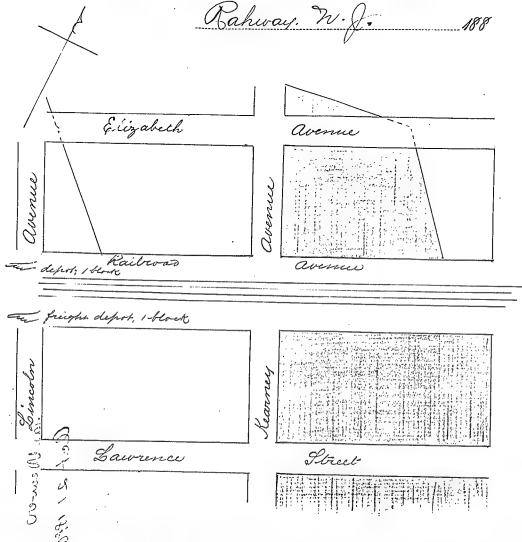 Rahway. N. J. 188
Elizabeth Avenue
Avenue
Avenue
Railroad Avenue
depot, 1 block
freight depot, 1 block
Lincoln
Kearney
Lawrence Street